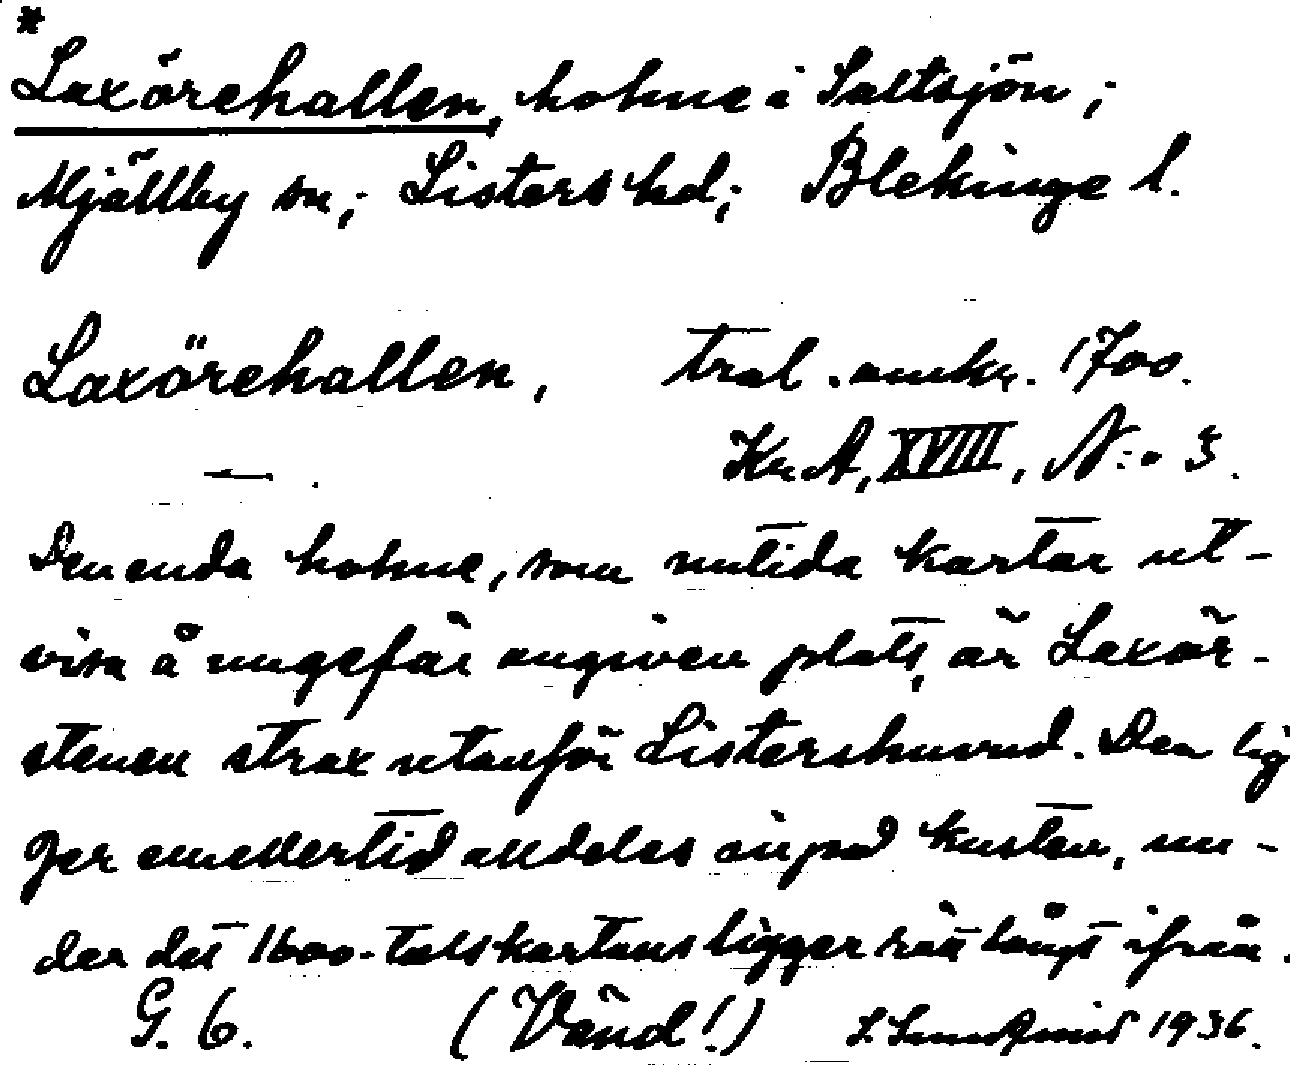 *
Laxörehallen, holme i Saltsjön;
Mjällby sn; Listers hd; Blekinge l.
Laxörehallen, tral. omkr. 1700.
Kr. A, XVIII, N:o 3.
Den enda holme, som nutida kartor ut-
visa å ungefär angiven plats, är Laxör-
stenen strax utanför Listershuvud. Den lig
ger emellertid alldeles inpå kusten, un-
der det 1600-talskartans ligger rätt långt ifrån.
G. 6. (Vänd!) 1936.